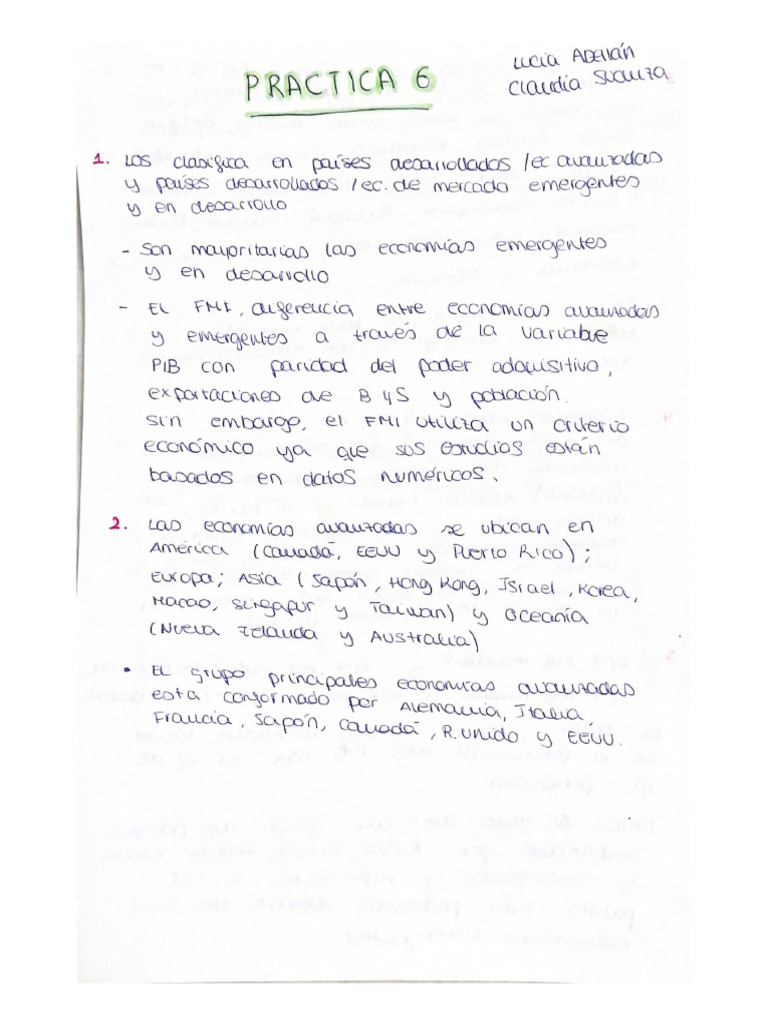 PRACTICA 6
Lucia Abellán
Claudia
1. Los clasifica en países desarrollados / ec. avanzadas
y países desarrollados / ec. de mercado emergentes
y en desarrollo
- Son mayoritarias las economías emergentes
y en desarrollo
- El FMI, diferencia entre economías avanzadas
y emergentes a través de la variable
PIB con paridad del poder adquisitivo,
exportaciones de B y S y población.
Sin embargo, el FMI utiliza un criterio
económico ya que sus estudios están
basados en datos numéricos.
2. Las economías avanzadas se ubican en
América (Canadá, EEUU y Puerto Rico);
Europa; Asia (Japón, Hong Kong, Israel, Korea,
Macao, Singapur y Taiwan) y Oceanía
(Nueva Zelanda y Australia)
• El grupo principales economías avanzadas
esta conformado por Alemania, Italia,
Francia, Japón, Canadá, R. Unido y EEUU.